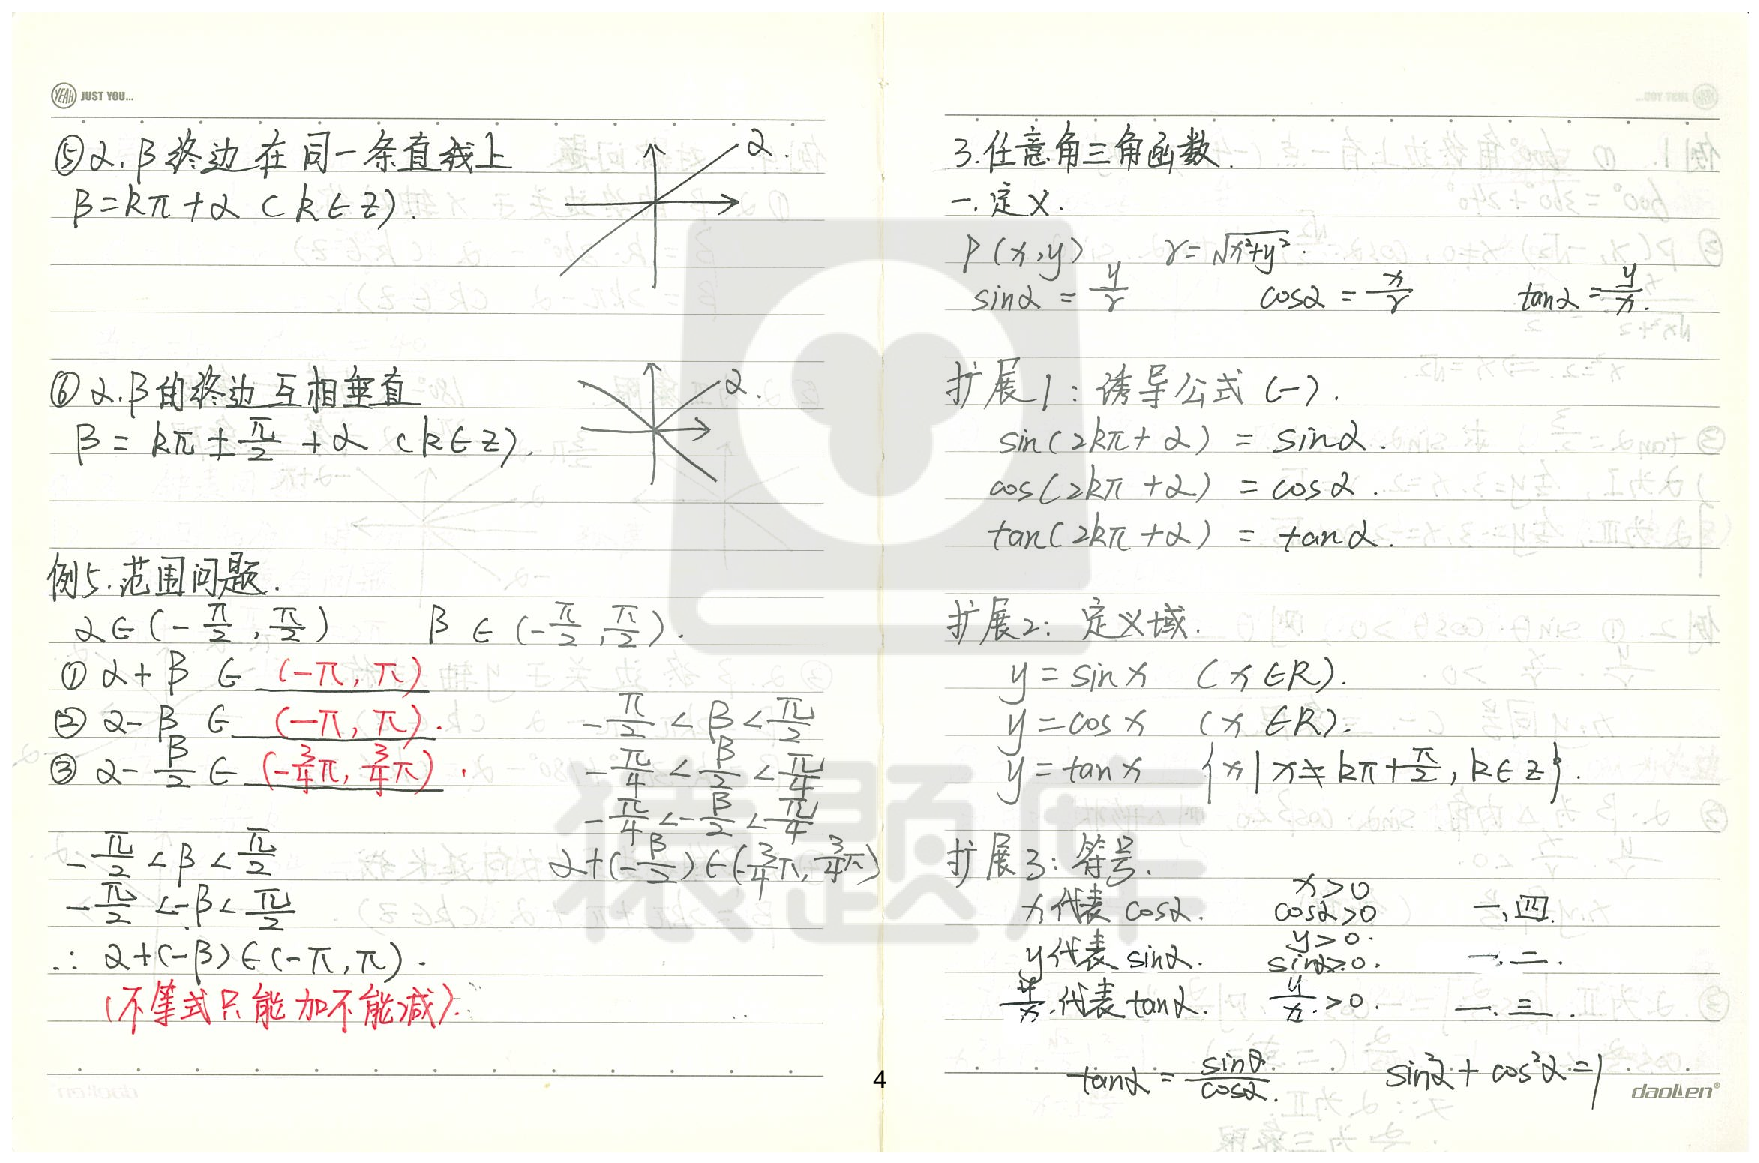 YEAH JUST YOU...
⑤α.β终边在同一条直线上
β=kπ+α (k∈Z).
α.
⑥α.β的终边互相垂直
β=kπ±π/2+α (k∈Z).
α.
例5.范围问题.
α∈(-π/2,π/2) β∈(-π/2,π/2).
①α+β∈ (-π,π)
②α-β∈ (-π,π).
③α-β/2∈ (-3/4π,3/4π).
-π/2<β<π/2
-π/4<β/2<π/4
-π/4<-β/2<π/4
α+(-β/2)∈(-3/4π,3/4π)
-π/2<β<π/2
-π/2<-β<π/2
∴α+(-β)∈(-π,π).
(不等式只能加不能减).
3.任意角三角函数.
一.定义.
P(x,y) r=√x²+y².
sinα=y/r cosα=x/r tanα=y/x.
扩展1:诱导公式(一).
sin(2kπ+α)=sinα.
cos(2kπ+α)=cosα.
tan(2kπ+α)=tanα.
扩展2:定义域.
y=sinx (x∈R).
y=cosx (x∈R).
y=tanx {x|x≠kπ+π/2,k∈Z}.
扩展3:符号.
x代表cosα. x>0 cosα>0 一,四.
y代表sinα. y>0. sinα>0. 一.二.
y/x.代表tanα. y/x.>0. 一.三.
tanα=sinθ/cosα. sin²α+cos²α=1
4
daolen®
猿题库